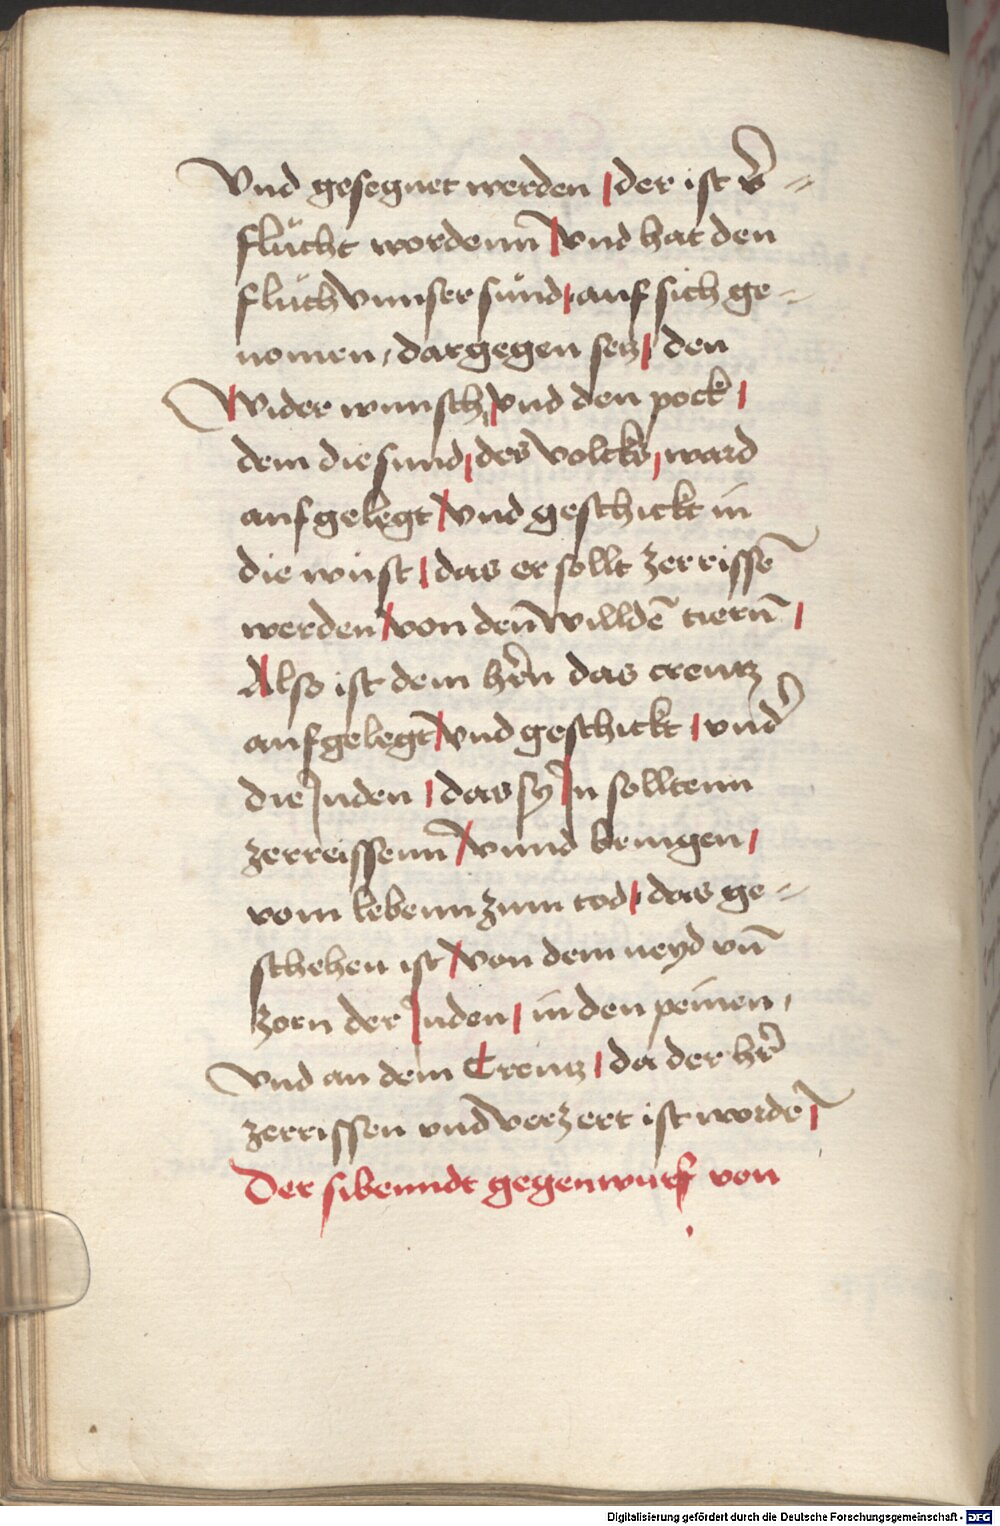 Vnd gesegnet werden / der ist v̄ =
flücht wordenn̄ / vnd hat den
flüch vnnser sünd / auf sich ge =
nomen / dargegen setz / den
Wider wunsch / vnd den pock /
dem die sünd / des Volcks / ward
auf gelegt / vnd geschickt in
die wüst / das er sollt zerrissē
werden / von den̄ willdē tiern̄ /
Also ist dem hr̄n das creutz
auf gelegt / vnd geschickt / vnd̛
die Juden / das sy Jn solltenn
zerreissenn̄ / vnnd bringen /
vom lebenn zum tod / das ge =
schehen ist / von dem neyd vn̄
zorn der Juden / in den peinen /
Vnd an dem Creutz / da der hr̄
zerrissen vnd verzert ist wordē /
Der sibenndt gegenwurf von
Digitalisierung gefördert durch die Deutsche Forschungsgemeinschaft - DFG